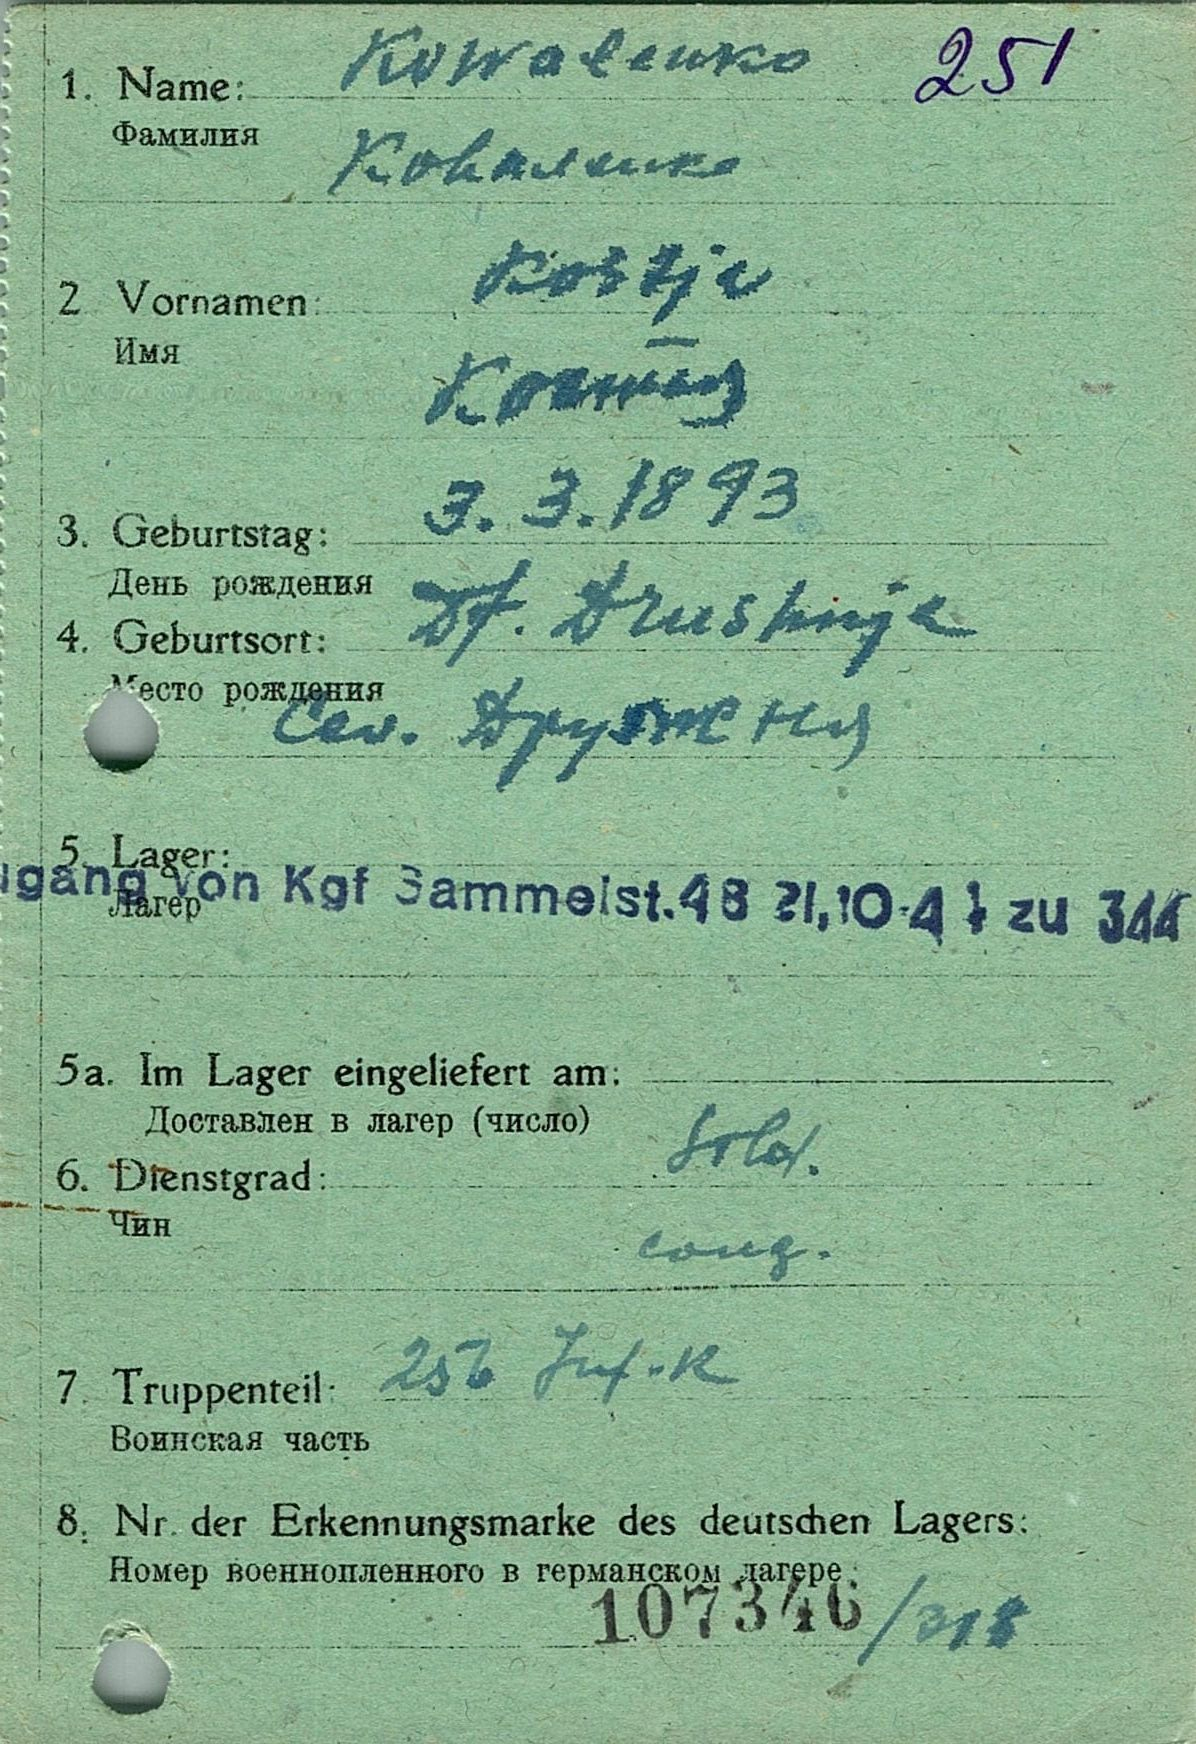 251
1. Name: Kowalenko
Фамилия
Коваленко
2 Vornamen: Kostja
Имя
Костя
3. Geburtstag: 3.3.1893
День рождения
4. Geburtsort: Df. Drushnja
Место рождения
Сел. Дружня
5. Lager:
ugang von Kgf Sammelst. 48 21.10.41 zu 344
Лагер
5a. Im Lager eingeliefert am:
Доставлен в лагер (число)
6. Dienstgrad: Sold.
Чин
солд.
7. Truppenteil: 256 Inf.-R
Воинская часть
8. Nr. der Erkennungsmarke des deutschen Lagers:
Номер военнопленного в германском лагере:
107346/318